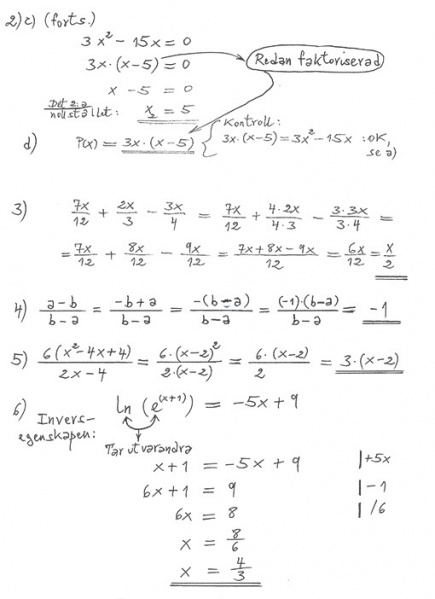 2) c) (forts.)
3x² - 15x = 0
3x·(x-5) = 0 Redan faktoriserad
x - 5 = 0
Det 2:a nollstället: x₂ = 5
d) P(x) = 3x·(x-5) { Kontroll: 3x·(x-5) = 3x² - 15x : OK, se a)
3) 7x/12 + 2x/3 - 3x/4 = 7x/12 + 4·2x/4·3 - 3·3x/3·4 =
= 7x/12 + 8x/12 - 9x/12 = 7x+8x-9x/12 = 6x/12 = x/2
4) a-b/b-a = -b+a/b-a = -(b-a)/b-a = (-1)·(b-a)/b-a = -1
5) 6(x²-4x+4)/2x-4 = 6·(x-2)²/2·(x-2) = 6·(x-2)/2 = 3·(x-2)
6) Invers-egenskapen: ln(e^(x+1)) = -5x + 9
Tar ut varandra
x + 1 = -5x + 9 |+5x
6x + 1 = 9 |-1
6x = 8 |/6
x = 8/6
x = 4/3